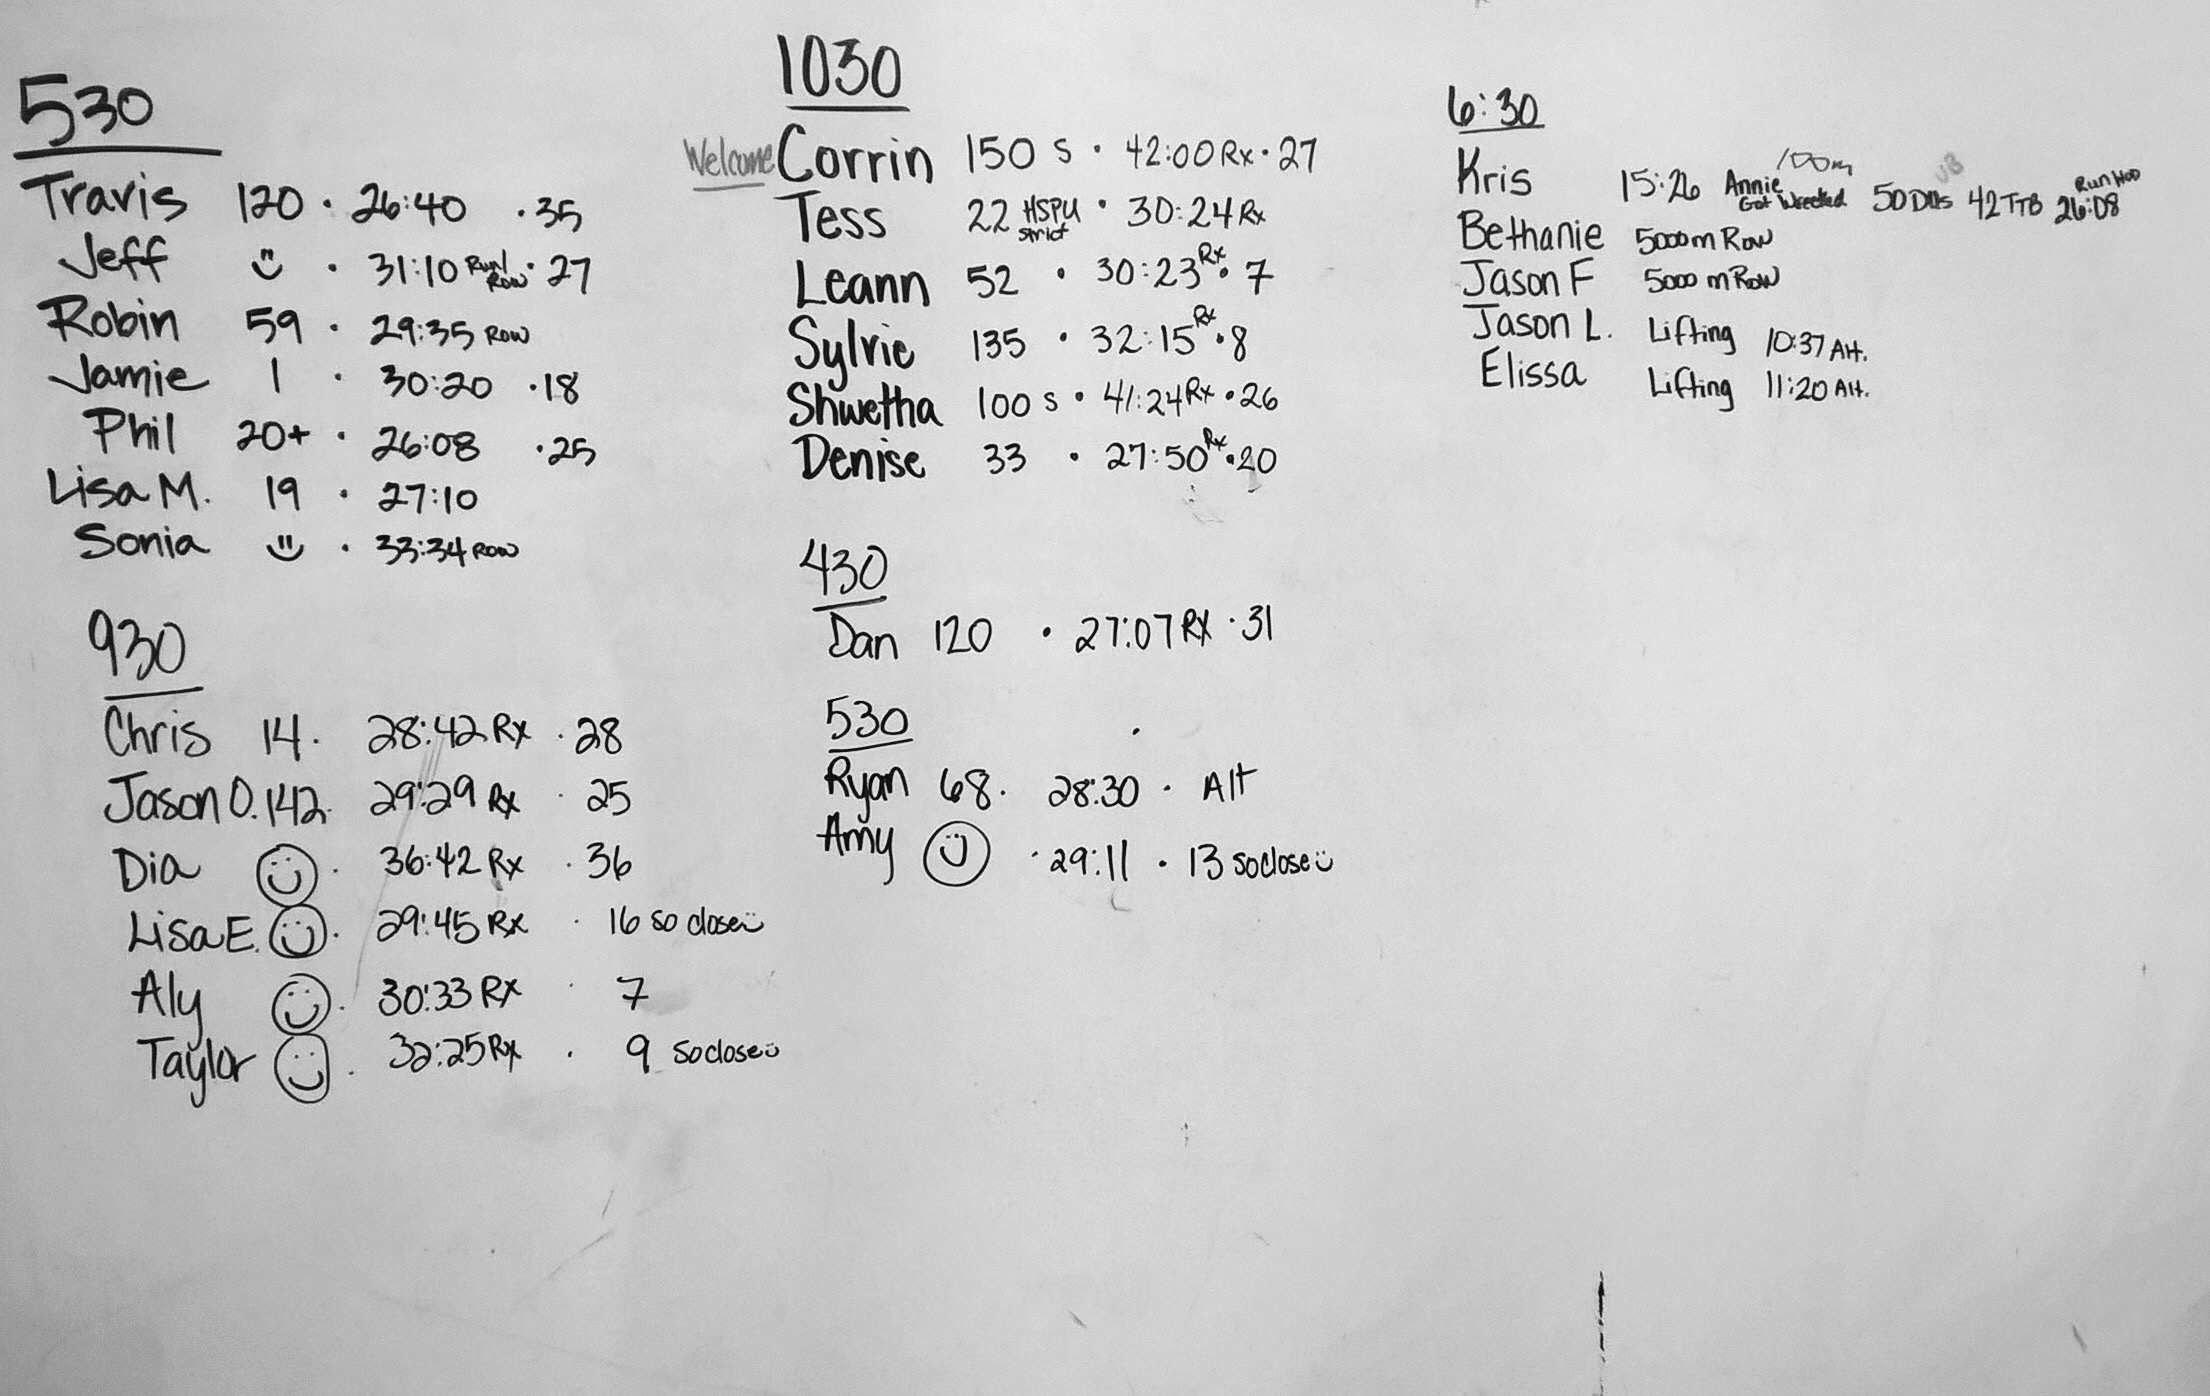 530
Travis 120 · 26:40 · 35
Jeff · 31:10 Run/Row · 27
Robin 59 · 29:35 Row
Jamie 1 · 30:20 · 18
Phil 20+ · 26:08 · 25
Lisa M. 19 · 27:10
Sonia · 33:34 Row
930
Chris 14 · 28:42 Rx · 28
Jason O. 142 · 29:29 Rx · 25
Dia · 36:42 Rx · 36
Lisa E. · 29:45 Rx · 16 so close
Aly · 30:33 Rx · 7
Taylor · 32:25 Rx · 9 so close
1030
Welcome Corrin 150 s · 42:00 Rx · 27
Tess 22 HSPU strict · 30:24 Rx
Leann 52 · 30:23 Rx · 7
Sylvie 135 · 32:15 Rx · 8
Shwetha 100 s · 41:24 Rx · 26
Denise 33 · 27:50 Rx · 20
430
Dan 120 · 27:07 RX · 31
530
Ryan 68 · 28:30 · Alt
Amy · 29:11 · 13 so close
6:30
Kris 15:26 Annie Got Wrecked 100m 50 DUs UB 42 TTB Run WOD 26:08
Bethanie 5000m Row
Jason F 5000 m Row
Jason L. Lifting 10:37 Alt.
Elissa Lifting 11:20 Alt.